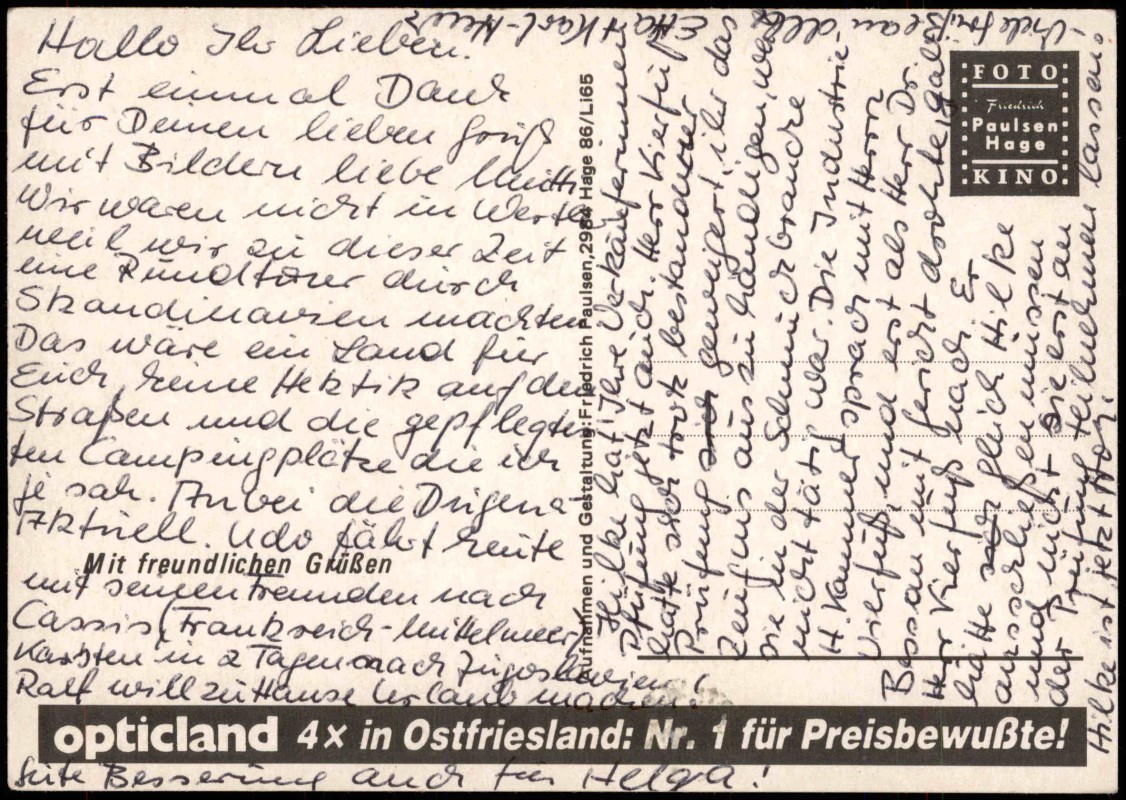 Hallo Ihr Lieben.
Erst einmal Dank
für Deinen lieben Gruß
mit Bildern liebe Mutti
Wir waren nicht in Werte
weil wir zu dieser Zeit
eine Rundtour durch
Skandinavien machten
Das wäre ein Land für
Euch, keine Hektik auf den
Straßen und die gepflegten
ten Campingplätze die ich
je sah. Anbei die
Aktuell. Udo fährt heute
Mit freundlichen Grüßen
mit seinen Freunden nach
Cassis, (Frankreich-Mittelmeer)
Karsten in 2 Tagen nach Jugoslawien!
Ralf will zu Hause Urlaub machen.
opticland 4x in Ostfriesland: Nr. 1 für Preisbewußte!
Gute Besserung auch für Helga!
Aufnahmen und Gestaltung: Friedrich Paulsen, 2984 Hage 86/Li65
FOTO
Friedrich
Paulsen
Hage
KINO
Hilke hat Ihre Verkäuferinnen
Prüfung jetzt auch. Herr Kierfuß
hatte sich trotz bestandener
Prüfung geweigert, ihr das
Zeugnis auszuhändigen, weil
sie in der Schmuckbranche
nicht tätig war. Die Industrie
H. Kammer sprach mit Herrn
Kierfuß, und erst als Herr Dr.
Bessau mit Gericht drohte, gab
Herr Kierfuß nach. Er
hätte gleich Hilke
ausschließen müssen
und nicht sie erst an
der Prüfung teilnehmen lassen.
Hilke ist jetzt
Viele Grüße an alle
Karl-Heinz